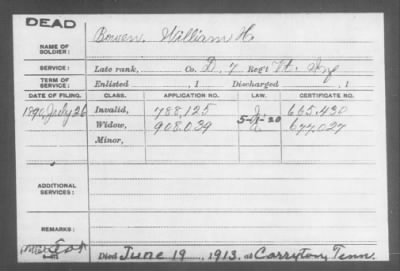 DEAD
NAME OF SOLDIER: Bowen, William H.
SERVICE: Late rank, Co. D, 7 Reg't Vt. Inf
TERM OF SERVICE: Enlisted , 1 Discharged , 1
DATE OF FILING. CLASS. APPLICATION NO. LAW. CERTIFICATE NO.
1890, July 26 Invalid, 788,125 665,430
Widow, 908,039 5-1-20 677,027
Minor,
ADDITIONAL SERVICES:
REMARKS:
Died June 19, 1913, at Carryton, Tenn.